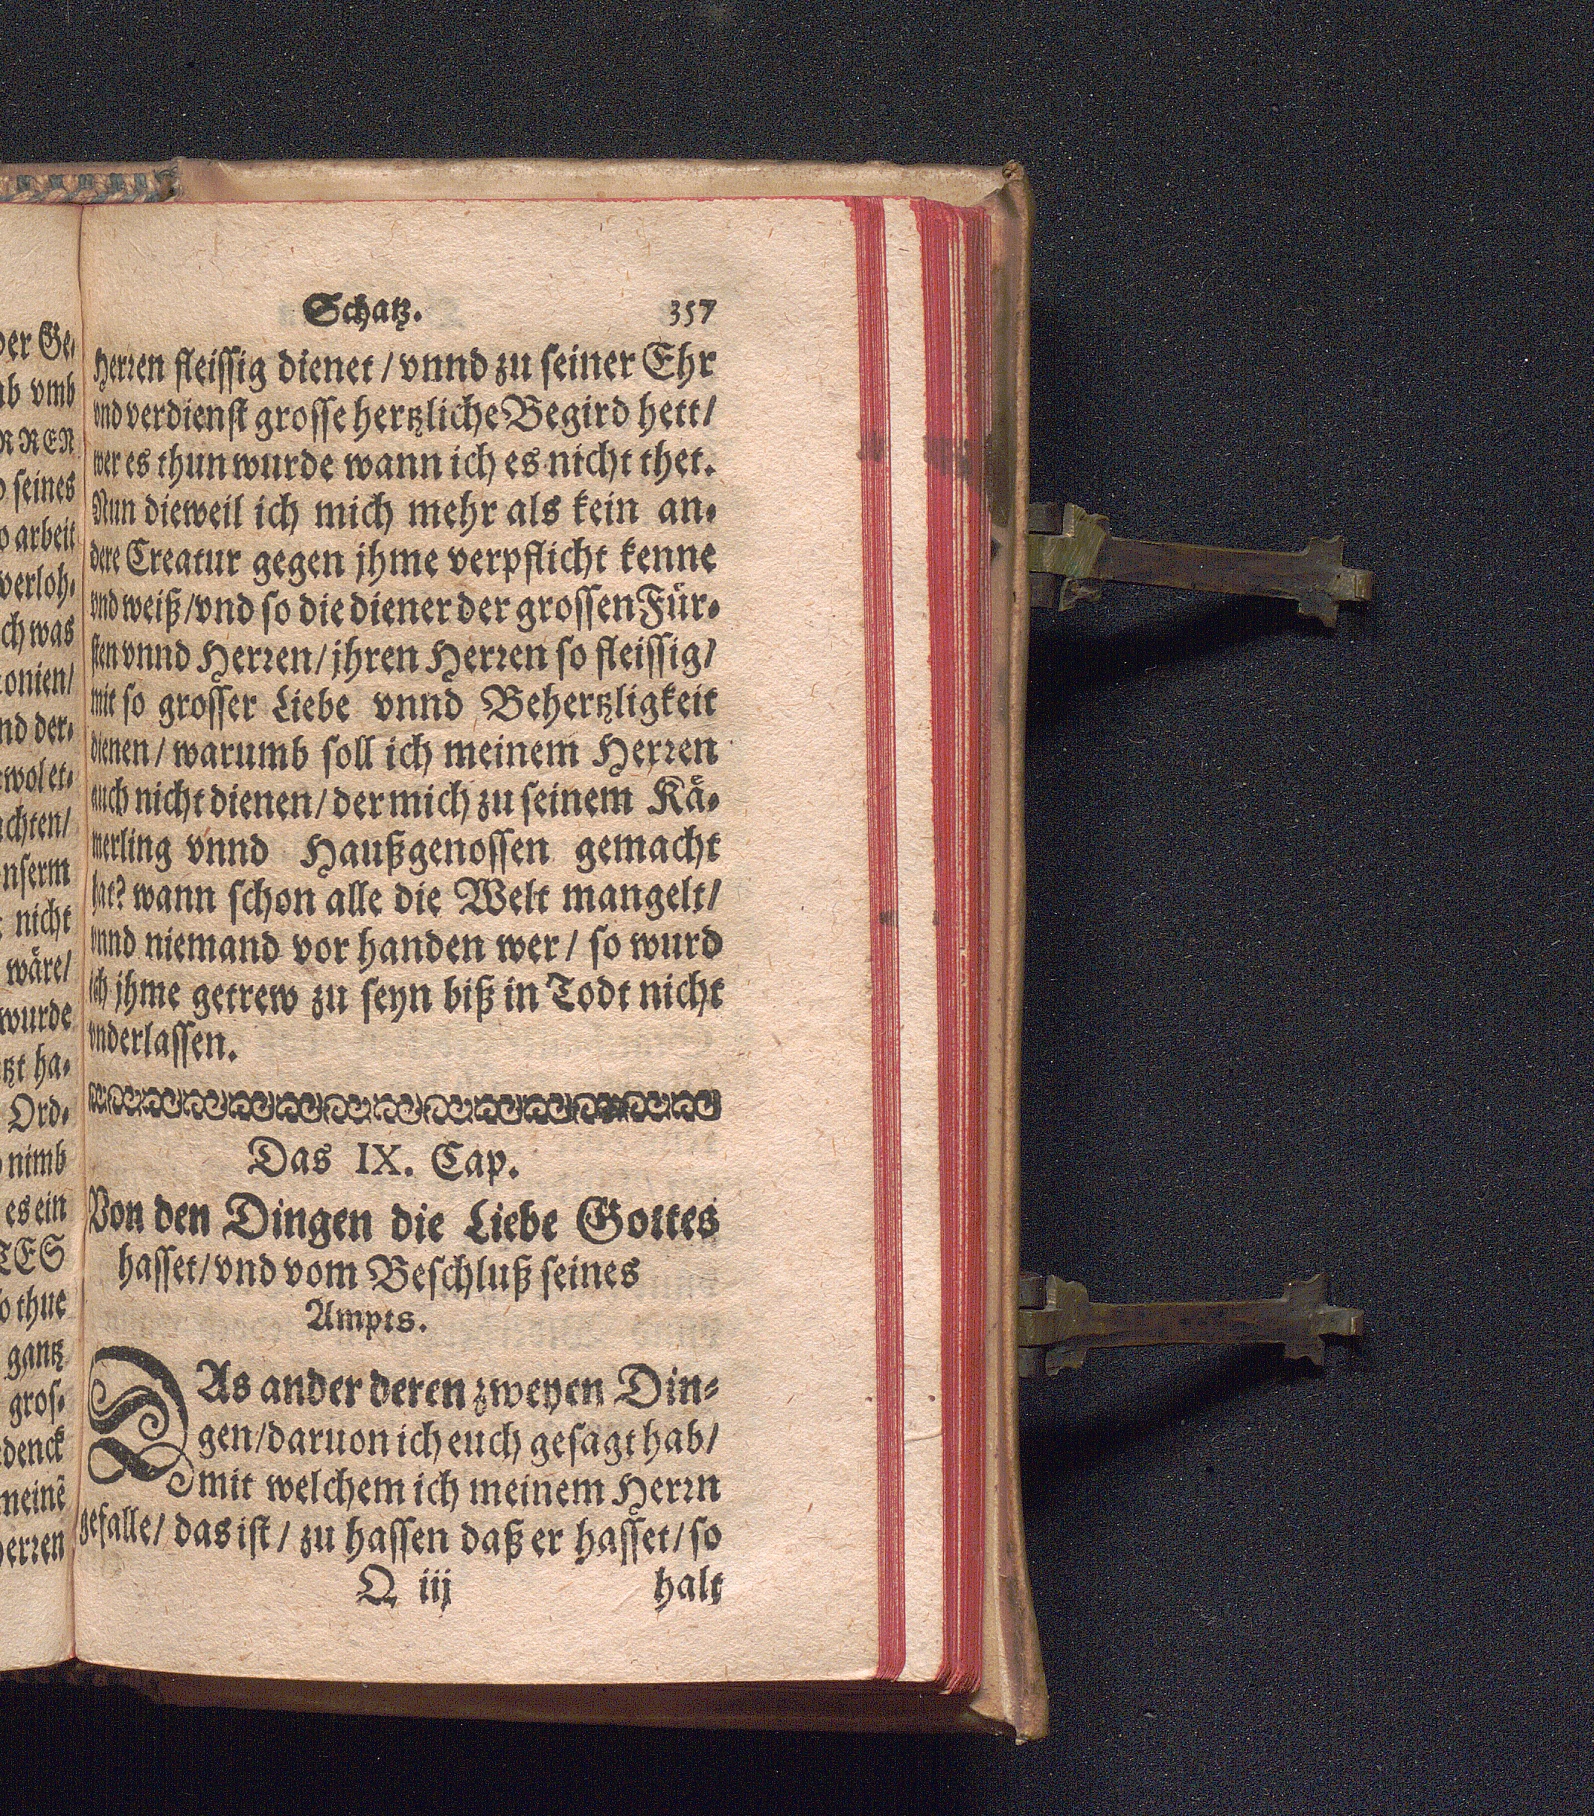 Schatz. 357
Herren fleissig dienet / vnnd zu seiner Ehr
vnd verdienst grosse hertzliche Begird hett/
wer es thun wurde wann ich es nicht thet.
Nun dieweil ich mich mehr als kein an-
dere Creatur gegen jhme verpflicht kenne
vnd weiß/vnd so die diener der grossen Für-
sten vnnd Herren/jhren Herren so fleissig/
mit so grosser Liebe vnnd Behertzligkeit
dienen/ warumb soll ich meinem Herren
auch nicht dienen/ der mich zu seinem Kä-
merling vnnd Haußgenossen gemacht
hat? wann schon alle die Welt mangelt/
vnnd niemand vor handen wer / so wurd
ich jhme getrew zu seyn biß in Todt nicht
vnderlassen.
Das IX. Cap.
Von den Dingen die Liebe Gottes
hasset/vnd vom Beschluß seines
Ampts.
DAs ander deren zweyen Din-
gen/daruon ich euch gesagt hab/
mit welchem ich meinem Herrn
gefalle/ das ist / zu hassen daß er hasset/ so
Q iij halt
der Ge-
vmb
RREN
seines
arbeit
verloh-
was
der-
wol et-
nicht
wäre/
wurde
ha-
Ord-
nimb
es ein
TES
thue
gantz
gros-
meinẽ
herren